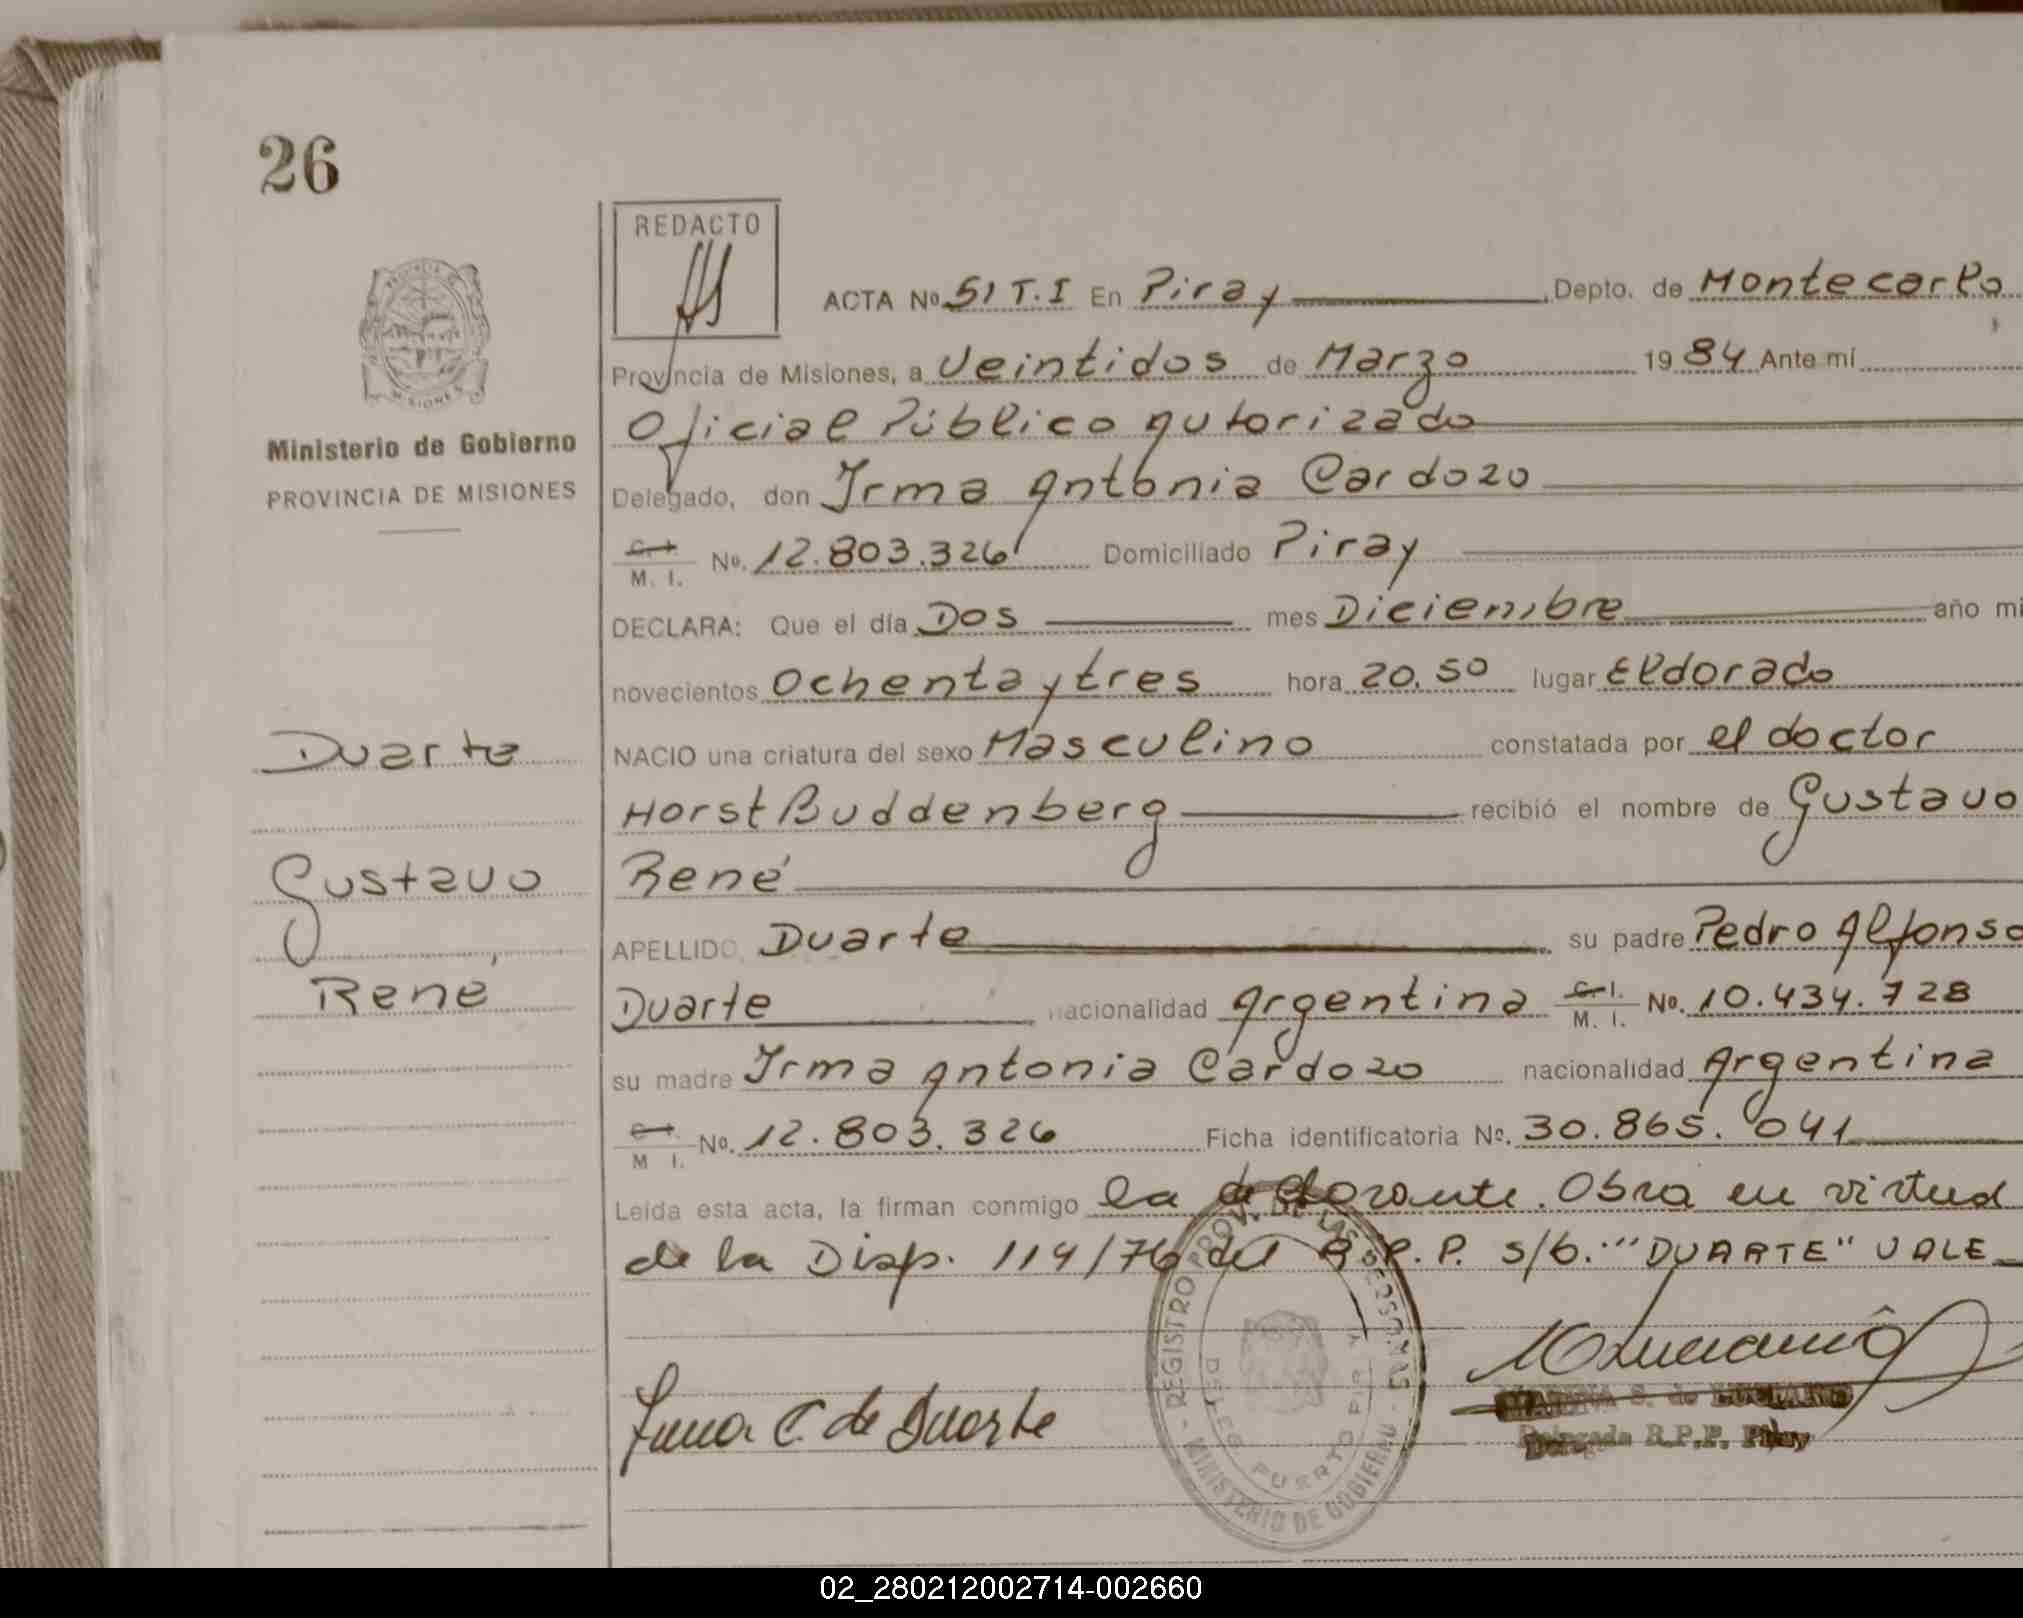 26
REDACTO
ACTA No 51 T.I En Piray Depto. de Montecarlo
Provincia de Misiones, a Veintidos de Marzo 1984 Ante mí
Oficial Público autorizado
Delegado, don Irma Antonia Cardozo
C. I. M. I. No. 12.803.326 Domiciliado Piray
DECLARA: Que el día Dos mes Diciembre año mi
novecientos Ochenta y tres hora 20.50 lugar Eldorado
NACIO una criatura del sexo Masculino constatada por el doctor
Horst Buddenberg recibió el nombre de Gustavo
René
APELLIDO Duarte su padre Pedro Alfonso
Duarte nacionalidad Argentina C. I. M. I. No. 10.434.728
su madre Irma Antonia Cardozo nacionalidad Argentina
C. I. M I. No. 12.803.326 Ficha identificatoria No. 30.865.041
Leída esta acta, la firman conmigo la declarante. Obra en virtud
de la Disp. 114/76 del R.P.P. S/b. "DUARTE" VALE
PROVINCIA DE MISIONES
Ministerio de Gobierno
PROVINCIA DE MISIONES
Duarte
Gustavo
René
Irma C. de Duarte
REGISTRO PROV. DE LAS PERSONAS
MINISTERIO DE GOBIERNO
DELEG. PUERTO PIRAY
S. de LUCIANO
Delegada R.P.P. Piray
02_280212002714-002660